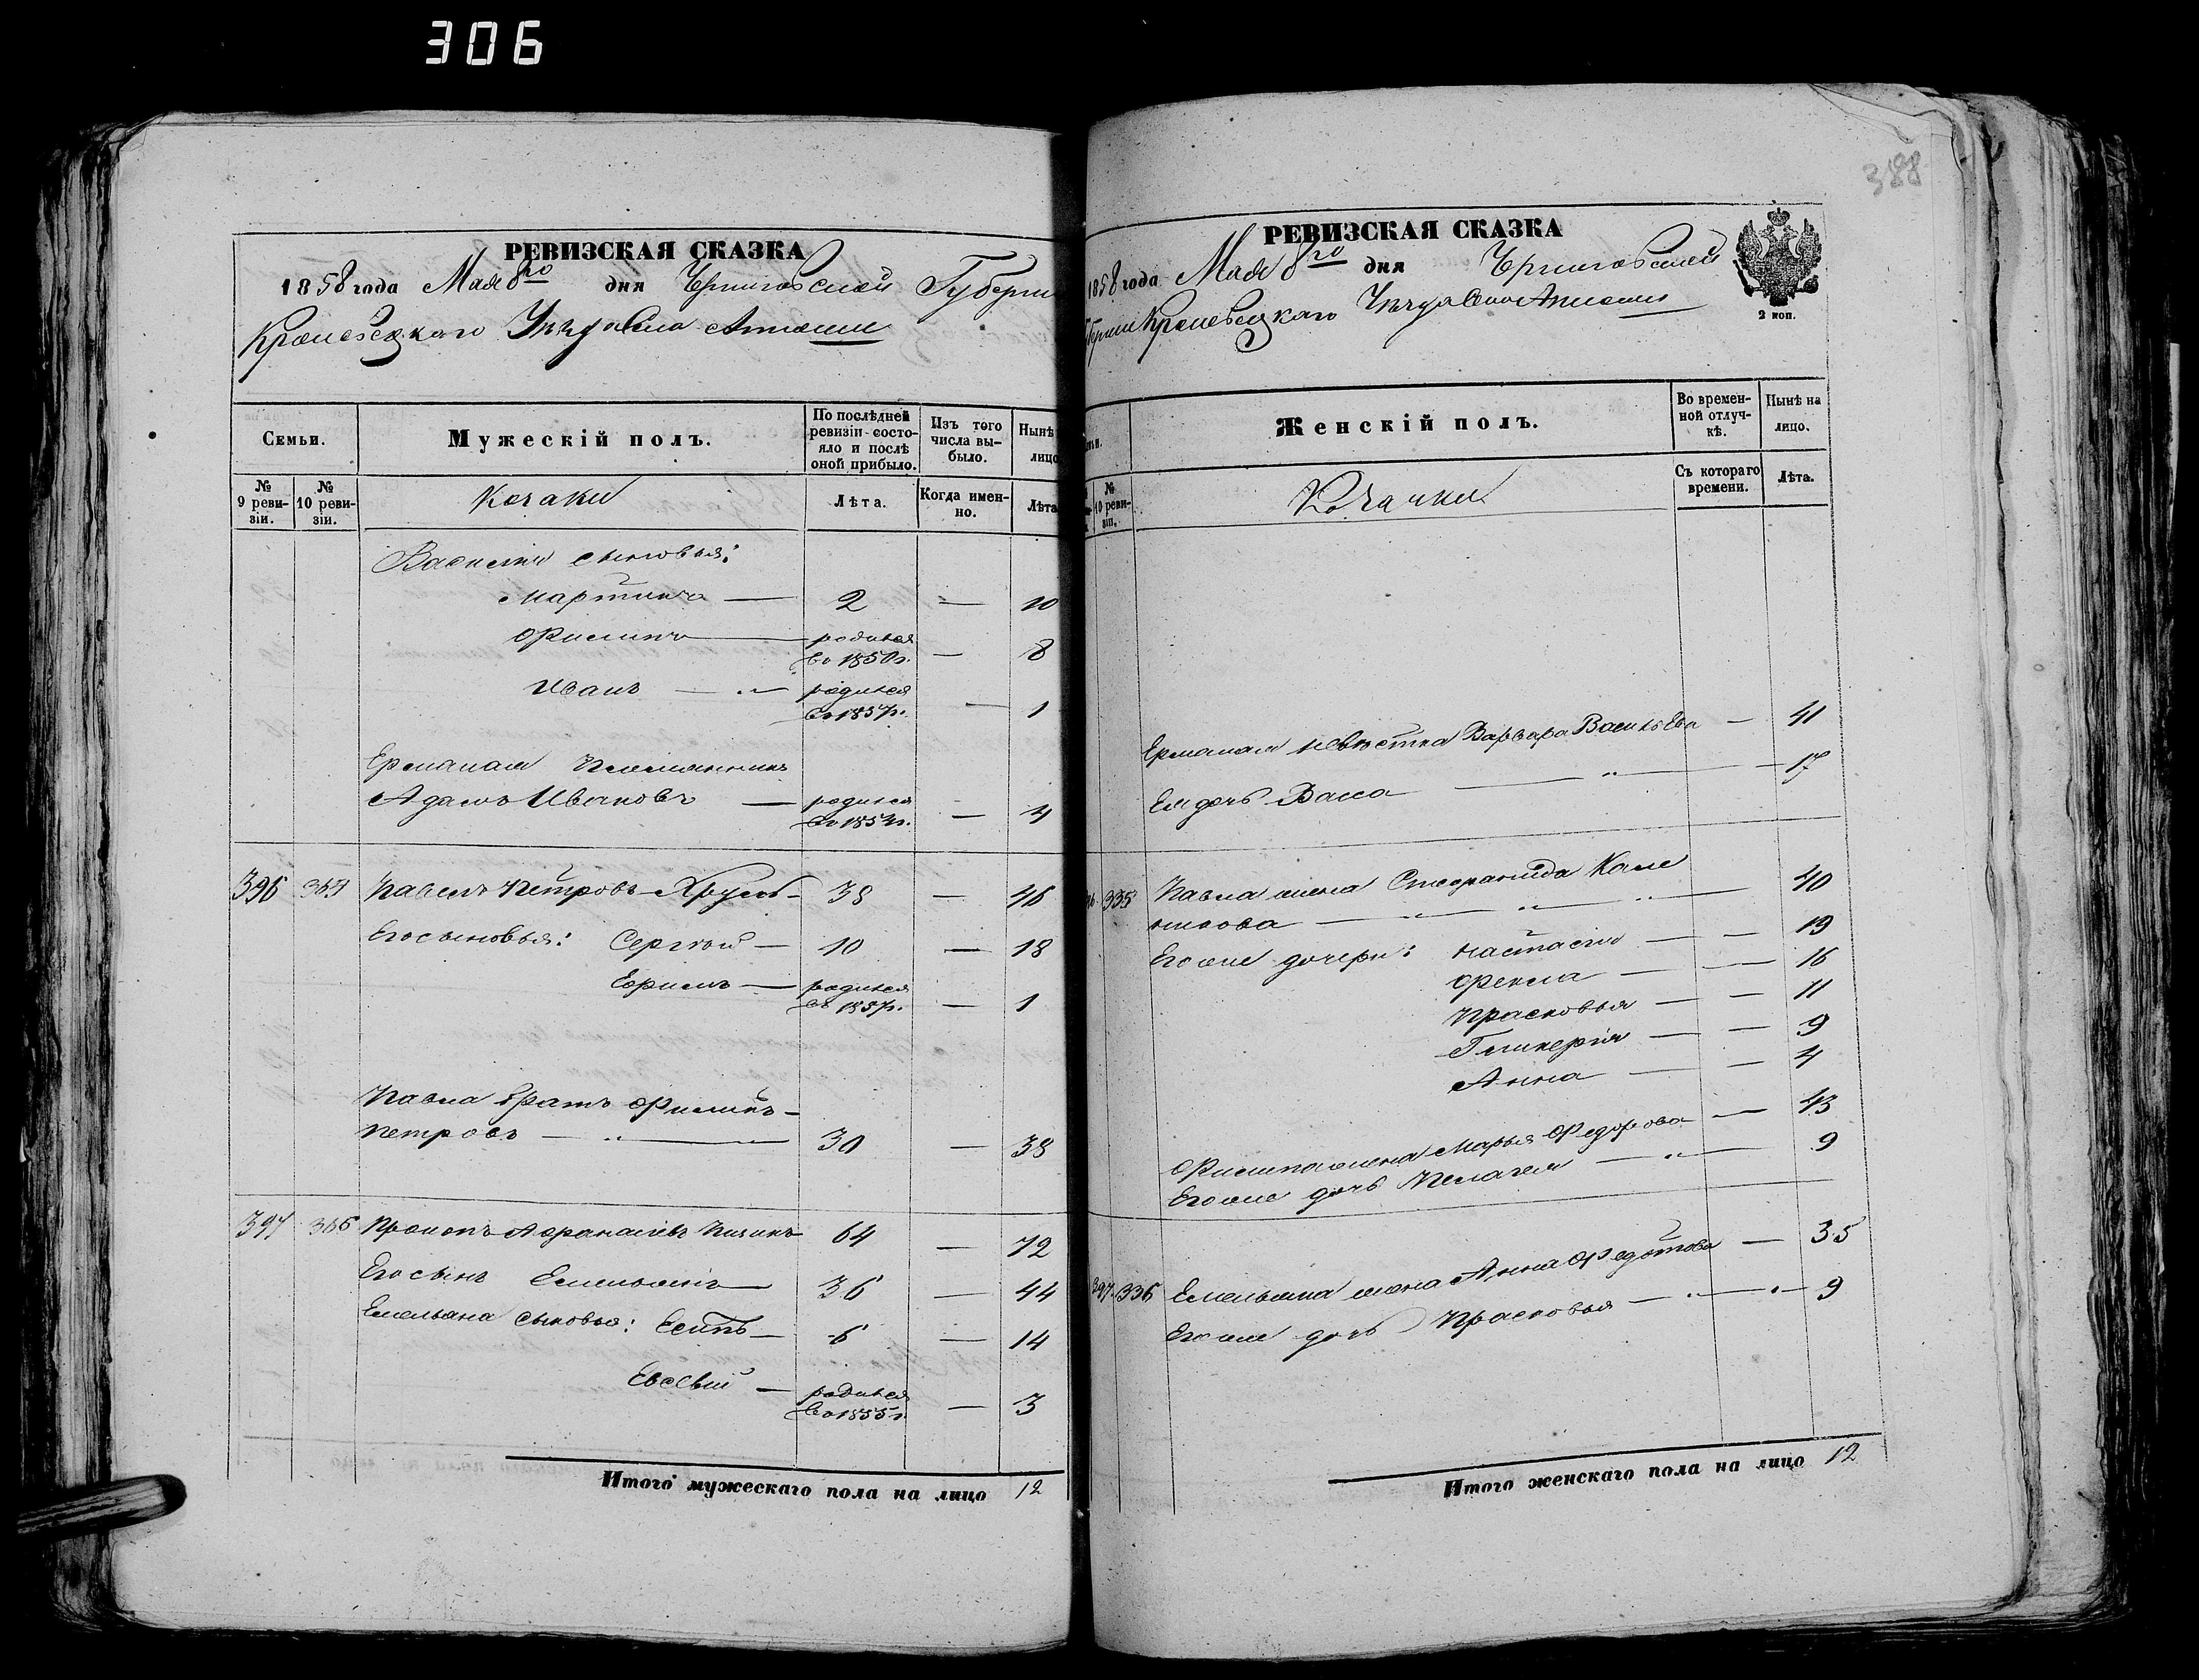 306
388
РЕВИЗСКАЯ СКАЗКА
1858 года Мая 8го дня Черниговской Губерніи
Кролевецкаго Уѣзда Села
Семьи.
Мужескій полъ.
По послѣдней ревизіи состояло и послѣ оной прибыло.
Изъ того числа выбыло.
Нынѣ лицо
№ 9 ревизіи.
№ 10 ревизіи.
Козаки
Лѣта.
Когда именно.
Лѣта
Василія сыновья:
Мартинъ — 2 — 10
Филипъ — родился во 1850г. — 8
Иванъ — родился въ 1857г. — 1
Ермолая Племянникъ
Адамъ Ивановъ — родился въ 1854г. — 4
396 Павелъ Петровъ — 38 — 46
Его сыновья: Сергѣй — 10 — 18
Ефимъ — родился въ 1857г. — 1
Павла братъ Филипъ
Петровъ — 30 — 38
397 Прокопъ Афанасіевъ 64 — 72
Его сынъ Емельянъ — 36 — 44
Емельяна сыновья: Есипъ — 6 — 14
Евсевій — родился въ 1855г. — 3
Итого мужескаго пола на лицо 12
РЕВИЗСКАЯ СКАЗКА
1858 года Мая 8го дня Черниговской
Губерніи Кролевецкаго Уѣзда Села
2 коп.
Женскій полъ.
Во временной отлучкѣ.
Нынѣ на лицо.
№ 10 ревизіи.
Козачки
Съ котораго времени.
Лѣта.
Ермолая невѣстка Варвара Васильева — 41
Ея дочь Васса — 17
335 Павла жена Степанида Калениkова — 40
Его же дочери: Настасія — 19
Фекла — 16
Прасковья — 11
Гликерія — 9
Анна — 4
Филипа жена Марья Федорова — 43
Его же дочь Пелагея — 9
397 336 Емельяна жена Анна Федотова — 35
Его же дочь Прасковья — 9
Итого женскаго пола на лицо 12